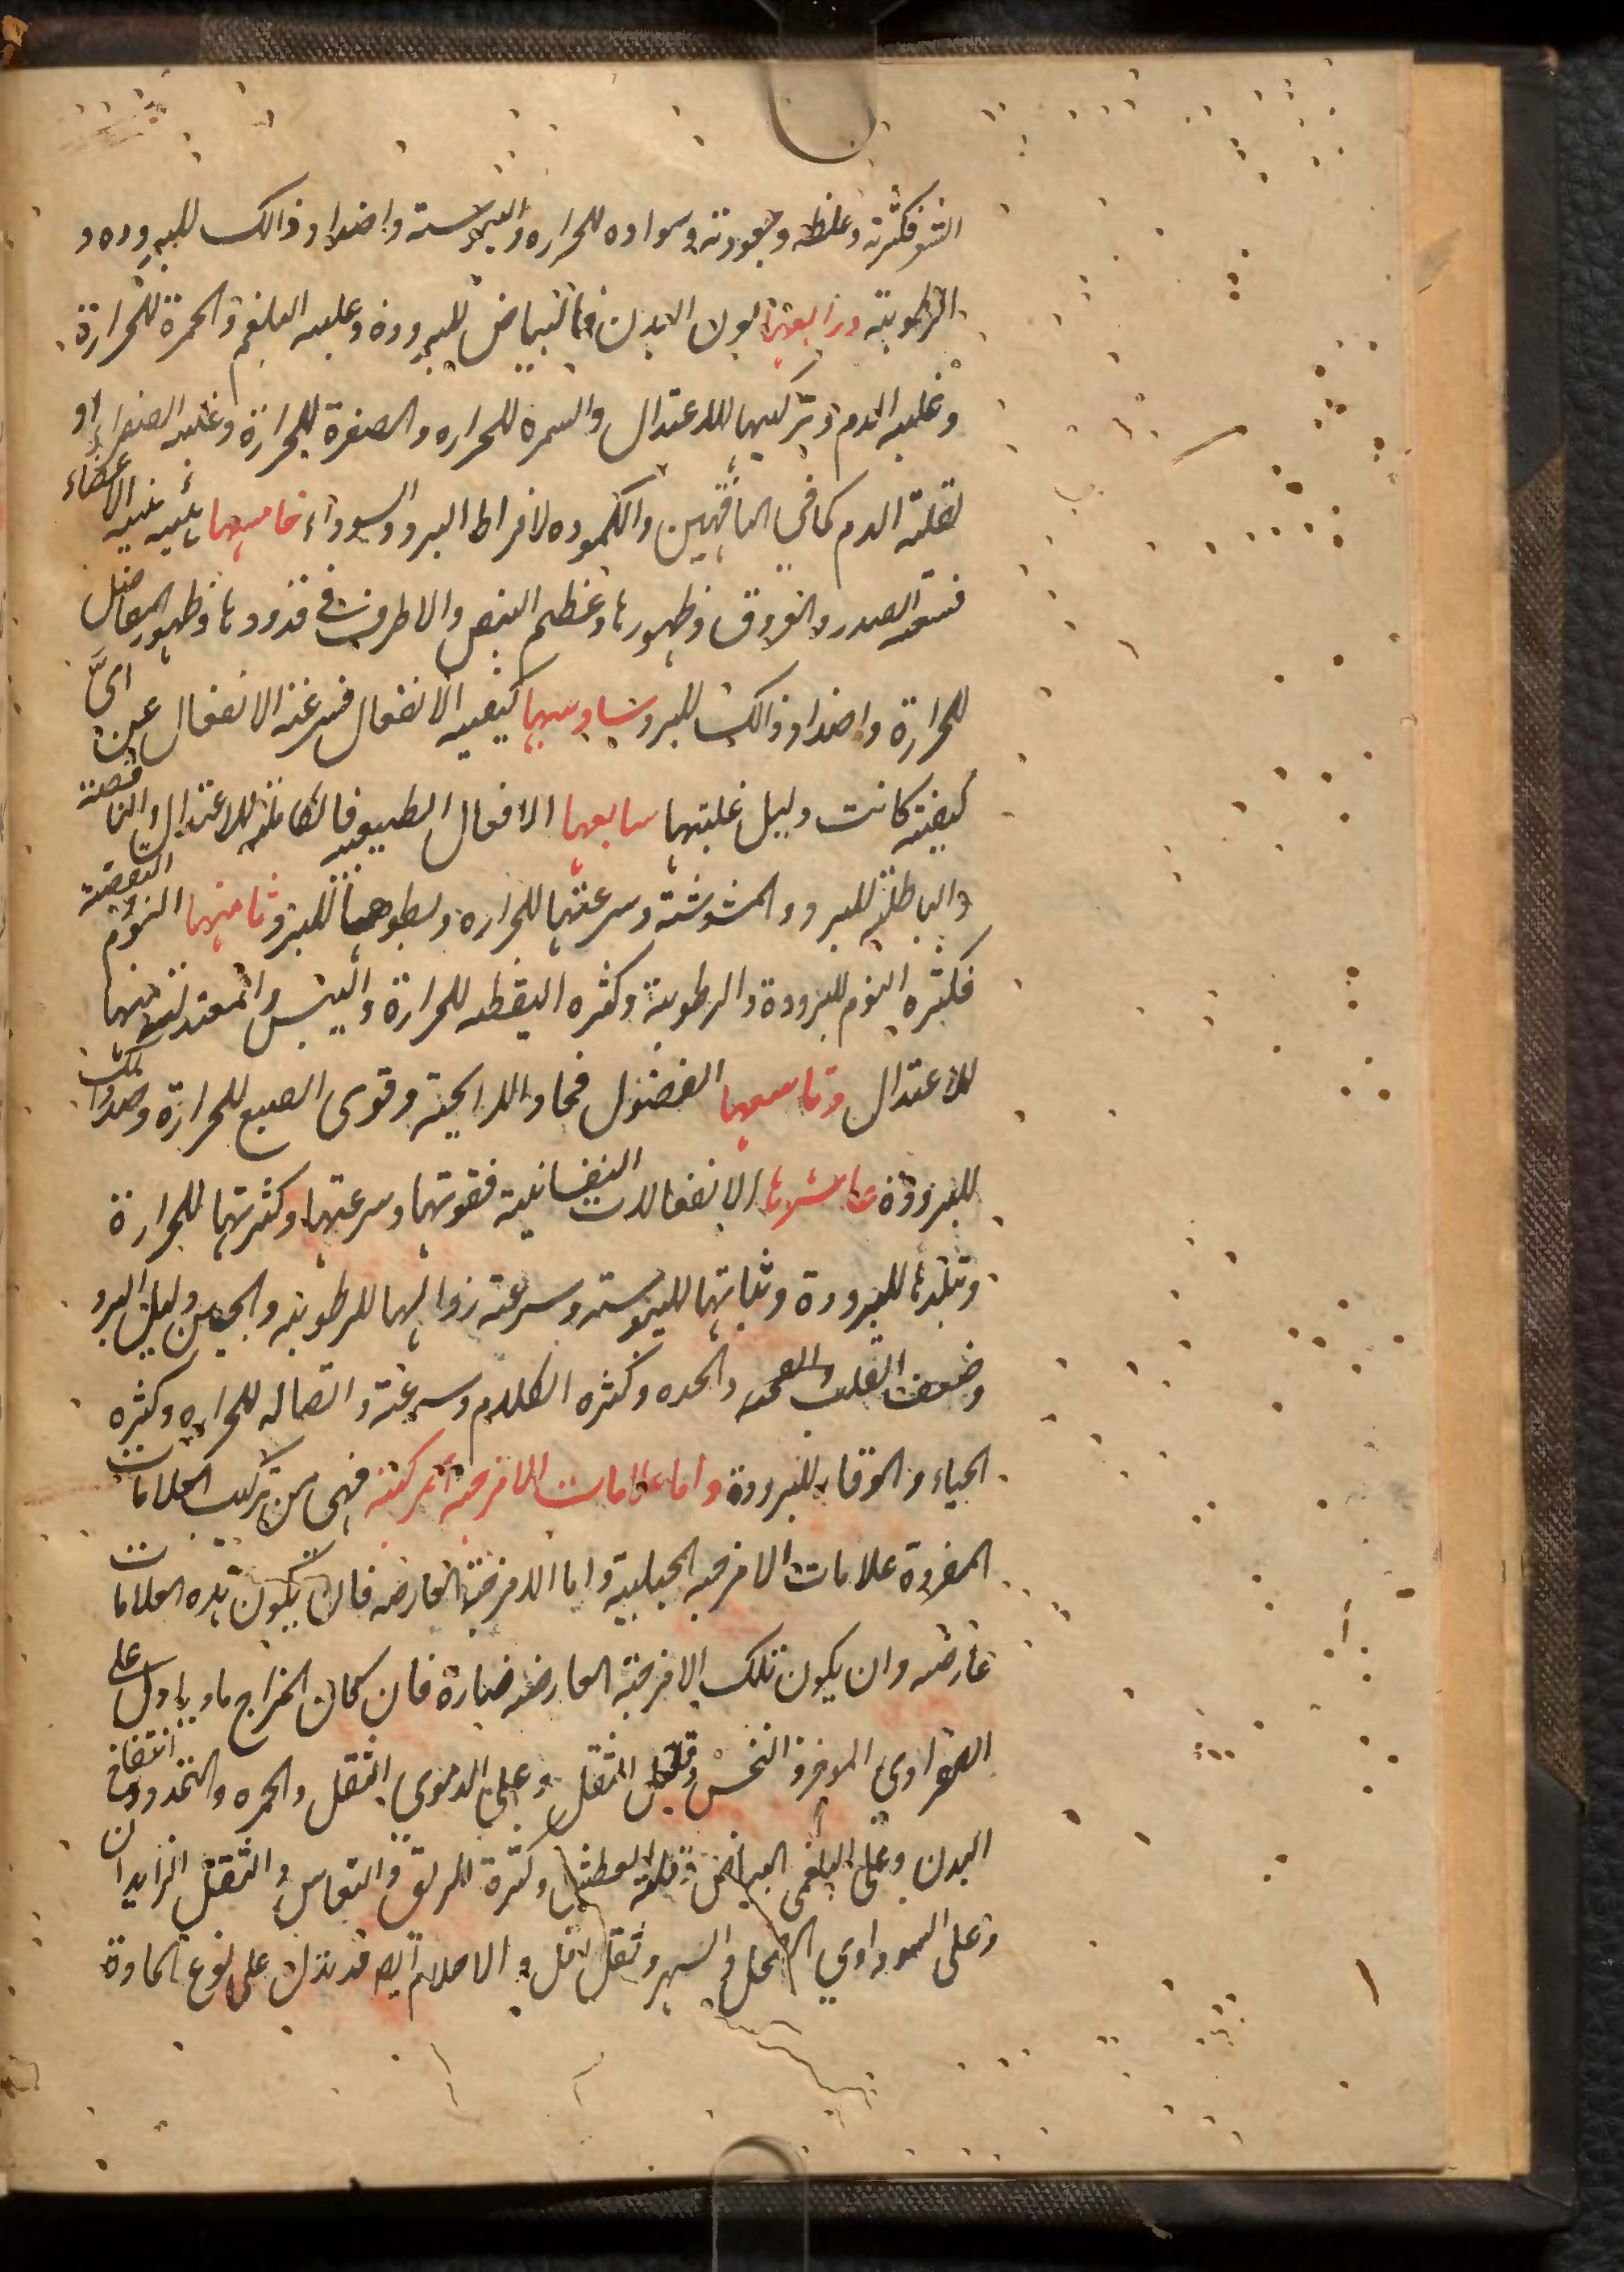 الشعر فكثرته وغلظه وجعودته وسواده للحراره واليبوسته واضداد ذالك للبروده و
الرطوبته ورابعها لون البدن فالبياض للبرودة وغلبه البلغم والحمرة للحرارة
وغلبه الدم وتركيبها للاعتدال والسمره للحراره والصفرة للحرارة وغلبه الصفراء او
لقلته الدم كما فى الناقهين والكموده لافراط البرد والسوداء خامسها هيئيه الاعضاء
فسعه الصدر والعروق وظهورها وعظم النبض والاطراف وظهور المفاصل
للحرارة واضداد ذالك للبرد سادسها كيفيه الانفعال فسرعته الانفعال عن اىّ
كيفيته كانت دليل غلبتها سابعها الافعال الطبيعيه فالكامله للاعتدال والناقصته
والباطله للبرد والمشوشته وسرعتها للحراره وبطوها للبرد ثامنها النوم اليقضته
فكثره النوم للبرودة والرطوبته وكثره اليقظه للحرارة واليبس والمعتدل منها
للاعتدال وتاسعها الفضول فحاد الرايحته وقوى الصبغ للحرارة وضد ذالك
للبرودة عاشرها الانفعالات النفسانية فقوتها وسرعتها وكثرتها للحرارة
وتبلدها للبرودة وثباتها لليبوسته وسرعته زوالها للرطوبته والجبن دليل البرد
وضعف القلب والحده وكثره الكلام وسرعته واتصاله للحراره وكثره
الحياء والوقار للبرودة واما علامات الامزجته المركبته فهى من تركيب العلامات
المفردة علامات الامزجه الجبليه واما الامزجته العارضه فان يكون هذه العلامات
عارضه وان يكون تلك الامزجته العارضه ضارة فان كان المزاج ماديا دل على
الصفراوي النخس وقليل الثقل وعلى الدموي الثقل والحمره والتمدد وانتفاخ
البدن وعلى البلغمى البياض وقلته العطش وكثرة الريق والنعاس والثقل الزايدان
وعلى السوداوي السهر وثقل اقل والاحلام ايضا قد تدل على نوع المادة